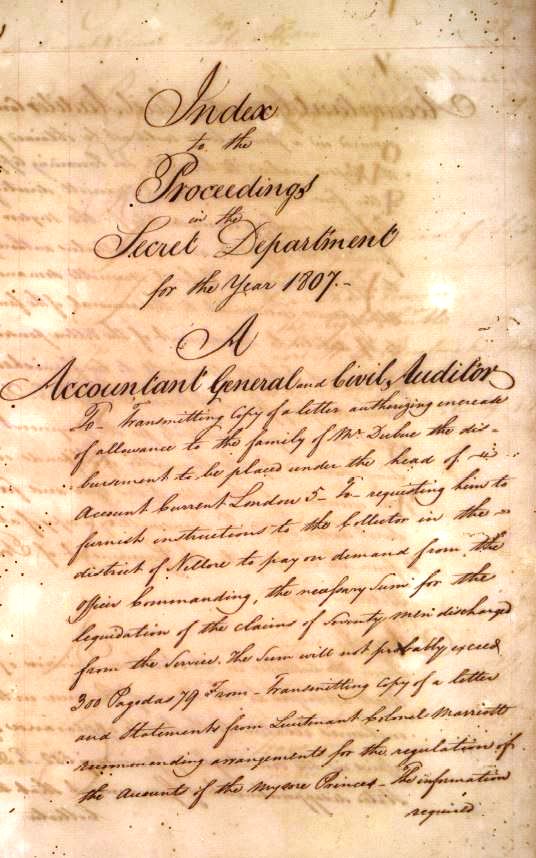 Index
to the
Proceedings
in the
Secret Department
for the Year 1807.-
A
Accountant General and Civil Auditor
To - Transmitting Copy of a letter authorizing encrease
of allowance to the family of Mr. Dubuc the dis-
bursement to be placed under the head of
Account Current London 5 - To - requesting him to
furnish instructions to the Collector in the
district of Nellore to pay on demand from the
officer Commanding, the neassary Sum for the
liquidation of the claims of Seventy men discharged
from the Service. The Sum will not probably exceed
300 Pagodas 79 From - Transmitting Copy of a letter
and Statements from Lieutnant Colonel Marriott
recommending arrangements for the regulation of
the Accounts of the Mysore Princes - The information
required